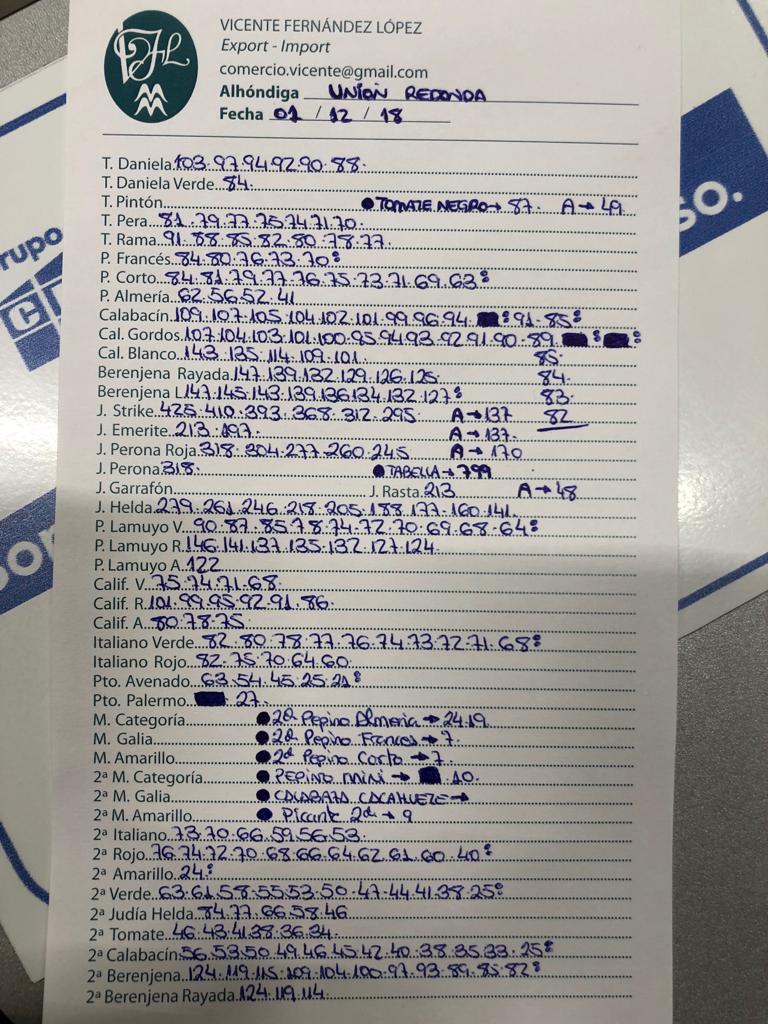 VICENTE FERNÁNDEZ LÓPEZ
Export - Import
comercio.vicente@gmail.com
Alhóndiga UNIÓN REDONDA
Fecha 01 / 12 / 18
T. Daniela 103.97.94.92.90.88.
T. Daniela Verde 84.
T. Pintón ● TOMATE NEGRO → 87. A → 49
T. Pera 81.79.77.75.74.71.70.
T. Rama 91.88.85.82.80.78.77.
P. Francés 84.80.76.73.70:
P. Corto 84.81.79.77.76.75.73.71.69.63:
P. Almería 62.56.52.41
Calabacín 109.107.105.104.102.101.99.96.94. : 91-85:
Cal. Gordos 107.104.103.101.100.95.94.93.92.91.90.89. : :
Cal. Blanco 143.135.114.109.101. 85.
Berenjena Rayada 147.139.132.129.126.125. 84.
Berenjena L 147.145.143.139.136.134.132.127: 83.
J. Strike 425.410.393.368.312.295 A → 137 82
J. Emerite 213.197. A → 137.
J. Perona Roja 318.304.277.260.245 A → 170
J. Perona 318. ● TABELLA → 799
J. Garrafón J. Rasta 213 A → 48
J. Helda 279.261.246.218.205.188.177.160.141.
P. Lamuyo V. 90.87.85.78.74.72.70.69.68.64:
P. Lamuyo R. 146.141.137.135.132.127.124.
P. Lamuyo A. 122
Calif. V. 75.74.71.68.
Calif. R. 101.99.95.92.91.86.
Calif. A. 80.78.75
Italiano Verde 82.80.78.77.76.74.73.72.71.68:
Italiano Rojo 82.75.70.64.60.
Pto. Avenado 63.54.45.25.21:
Pto. Palermo 27.
M. Categoría ● 2ª Pepino Almeria → 24.19.
M. Galia ● 2ª Pepino Frances → 7.
M. Amarillo ● 2ª Pepino Corto → 7.
2ª M. Categoría ● PEPINO MINI → 10.
2ª M. Galia ● CALABAZA CACAHUETE →
2ª M. Amarillo ● Picante 2ª → 9
2ª Italiano 73.70.66.59.56.53.
2ª Rojo 76.74.72.70.68.66.64.62.61.60.40:
2ª Amarillo 24:
2ª Verde 63.61.58.55.53.50.47.44.41.38.25:
2ª Judía Helda 84.77.66.58.46
2ª Tomate 46.43.41.38.36.34.
2ª Calabacín 56.53.50.49.46.45.42.40.38.35.33.25:
2ª Berenjena 124.119.115.109.104.100.97.93.89.85.82:
2ª Berenjena Rayada 124.119.114.